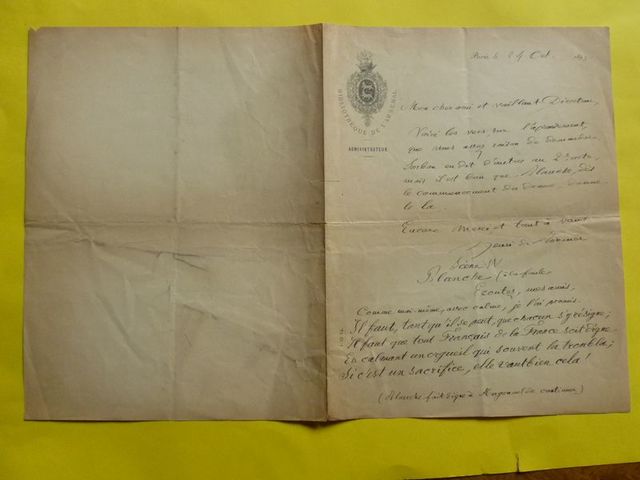 BIBLIOTHÈQUE DE L'ARSENAL
ADMINISTRATEUR
Paris le 24 Oct. 189
Mon cher ami et vaillant Directeur,
Voici les vers sur l'apaisement,
que vous avez raison de demander.
Sorbon en dit d'autres au 2e acte,
mais il est bon que Blanche, dès
le commencement du drame, donne
le la.
Encore merci et tout à vous
Henri de Bornier
Scène IV
Blanche (à la foule)
Ecoutez, mes amis,
Comme moi-même, avec calme, je l'ai promis.
Il faut, tant qu'il se peut, que chacun s'y résigne;
Il faut que tout Français de la France soit digne
En calmant un orgueil qui souvent la troubla;
Si c'est un sacrifice, elle vaut bien cela!
(Blanche fait signe à de continuer)